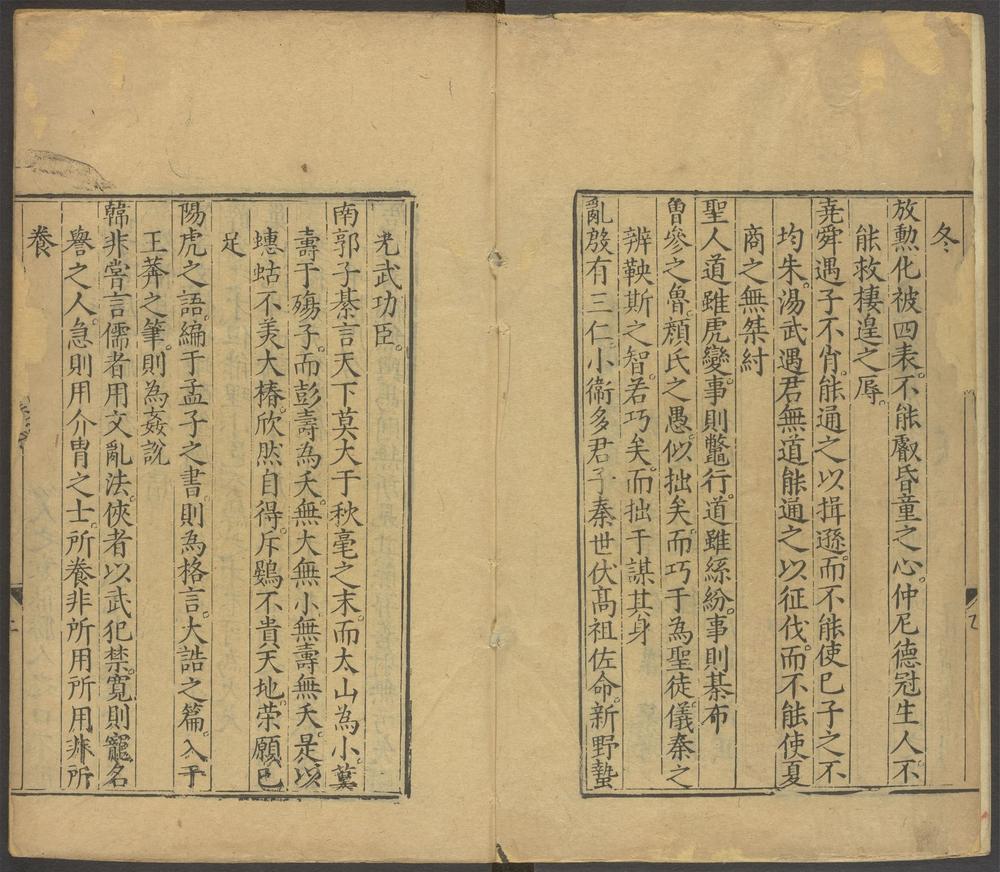 冬
放勲化被四表。不能革昏童之心。仲尼德冠生人。不
能救棲遑之辱。
堯舜遇子不肖。能通之以揖遜。而不能使已子之不
均朱。湯武遇君無道能通之以征伐。而不能使夏
商之無桀紂
聖人道雖虎變。事則鼈行。道雖絲紛。事則棊布
曾參之魯。顏氏之愚。似拙矣。而巧于為聖徒。儀秦之
辨鞅斯之智。若巧矣。而拙于謀其身
亂殷有三仁。小衞多君子秦世伏高祖佐命。新野蟄
光武功臣。
南郭子綦言天下莫大于秋毫之末。而太山為小。莫
壽于殤子。而彭壽為夭。無大無小。無壽無夭。是以
蟪蛄不羙大椿。欣然自得。斥鷃不貴天地。荣願已
足
陽虎之語。編于孟子之書。則為格言。大誥之篇。入于
王莽之筆。則為姦説
韓非嘗言儒者用文亂法。俠者以武犯禁。寬則寵名
譽之人。急則用介胄之士。所養非所用所用非所
養